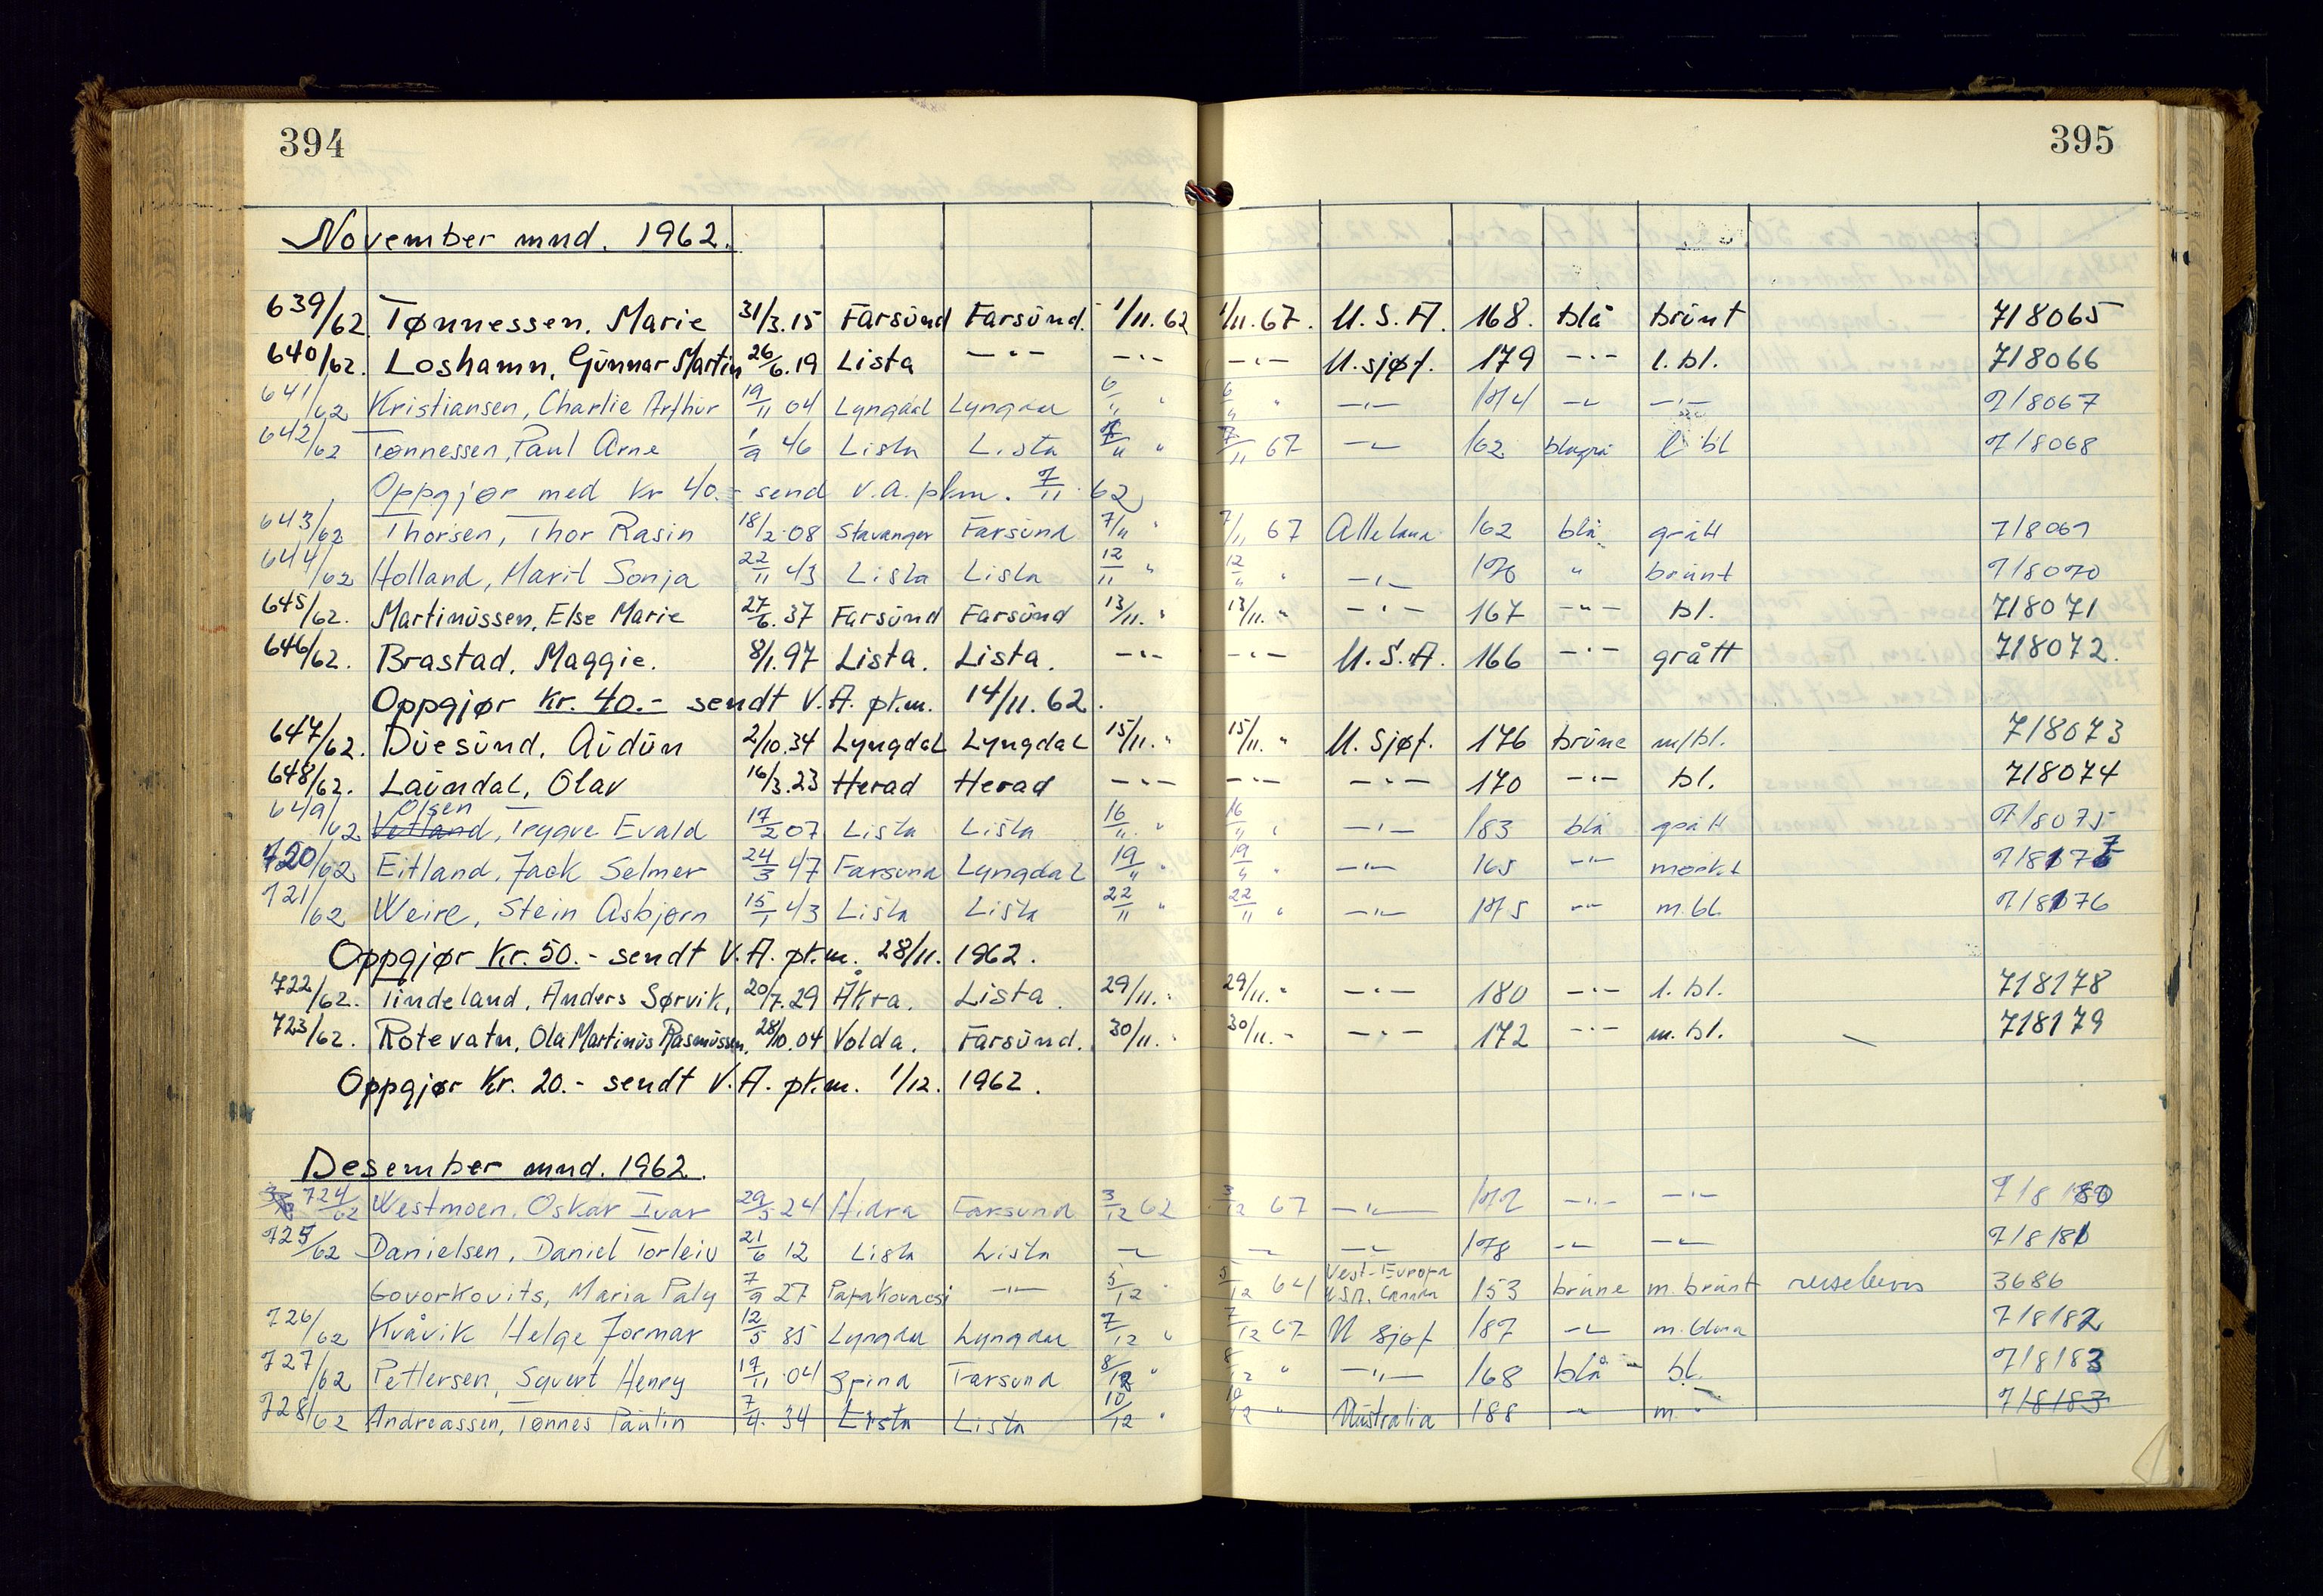 394
395
November mnd. 1962.
639/62. Tønnessen, Marie 31/3.15 Farsund Farsund. 1/11.62 1/11.67. U.S.A. 168. blå brunt 718065
640/62. Loshamn, Gunnar Martin 26/6.19 Lista -"- -"- -"- U.sjøf. 179 -"- l.bl. 718066
641/62 Kristiansen, Charlie Arthur 19/11 04 Lyngdal Lyngdal 6/11 " 6/11 " -"- 174 -"- -"- 718067
642/62 Tønnessen, Paul Arne 1/9 46 Lista Lista 7/11 " 7/11 67 -"- 162 blågrå l bl 718068
Oppgjør med kr 40.- send V.A. pkm. 7/11.62
643/62 Thorsen, Thor Rasin 18/2.08 Stavanger Farsund 7/11 " 7/11 67 Alle land 162 blå grått 718069
644/62 Holland, Marit Sonja 22/11 43 Lista Lista 12/11 " 12/11 " -"- 170 " brunt 718070
645/62. Martinussen, Else Marie 27/6.37 Farsund Farsund 13/11. " 13/11. " -"- 167 -"- bl. 718071
646/62. Brastad, Maggie. 8/1.97 Lista. Lista. -"- -"- U.S.A. 166 -"- grått 718072.
Oppgjør kr. 40.- sendt V.A. pk.m. 14/11.62.
647/62. Duesund, Audun 2/10.34 Lyngdal Lyngdal 15/11. " 15/11. " U.sjøf. 176 brune m/bl. 718073
648/62. Laundal, Olav 16/3.23 Herad Herad -"- -"- -"- 170 -"- bl. 718074
649/62 Vetland Olsen, Trygve Evald 17/2 07 Lista Lista 16/11. " 16/11 " -"- 183 blå grått 718075
720/62 Eitland, Jack Selmer 24/3 47 Farsund Lyngdal 19/11 " 19/11 " -"- 165 -"- mørkt 718177
721/62 Weire, Stein Asbjørn 15/1 43 Lista Lista 22/11 " 22/11 " -"- 175 -"- m.bl. 718176
Oppgjør Kr. 50.- sendt V.A. pk.m. 28/11. 1962.
722/62. Tindeland, Anders Sørvik, 20/7.29 Åkra. Lista. 29/11. " 29/11. " -"- 180 -"- l.bl. 718178
723/62. Rotevatn, Ola Martinus Rasmussen, 28/10.04 Volda. Farsund. 30/11. " 30/11. " -"- 172 -"- m.bl. 718179
Oppgjør Kr. 20.- sendt V.A. pk.m. 1/12. 1962.
Desember mnd. 1962.
724/62 Westmoen, Oskar Ivar 29/5 24 Hidra Farsund 3/12 62 3/12 67 -"- 172 -"- -"- 718180
725/62 Danielsen, Daniel Torleiv 21/6 12 Lista Lista -"- -"- -"- 178 -"- -"- 718181
Govorkovits, Maria Paly 7/9 27 Papakovacsi -"- 5/12 " 5/12 64 Vest-Europa U.S.A. Canada 153 brune m. brunt reisebevis 3686
726/62 Kvåvik Helge Jormar 12/5 35 Lyngdal Lyngdal 7/12 " 7/12 67 U sjøf 187 -"- m. blond 718182
727/62 Pettersen, Sqvert Henry 17/11.04 Spind Farsund 8/12 " 8/12 " -"- 168 blå bl. 718183
728/62 Andreassen, Tønnes Paulin 7/4.34 Lista Lista 10/12 " 10/12 " Australia 188 -"- m. " 718183